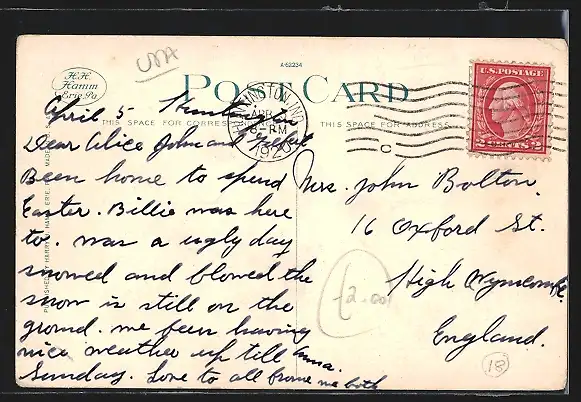 USA
A-62234
H.H.
Hamm
Erie, Pa.
POST CARD
THIS SPACE FOR CORRES
THIS SPACE FOR ADDRESS
HUNTINGTON, IND.
APR
8-PM
1920
U.S. POSTAGE
2 CENTS 2
April 5
Dear Alice John and
Been home to spend
Easter. Billie was here
to. was a ugly day
snowed and blowed the
snow is still on the
ground. we been having
nice weather up till
Sunday. Love to all from me both
Anna.
Mrs. John Bolton.
16 Oxford St.
High Wycombe
England.
£2.00
18